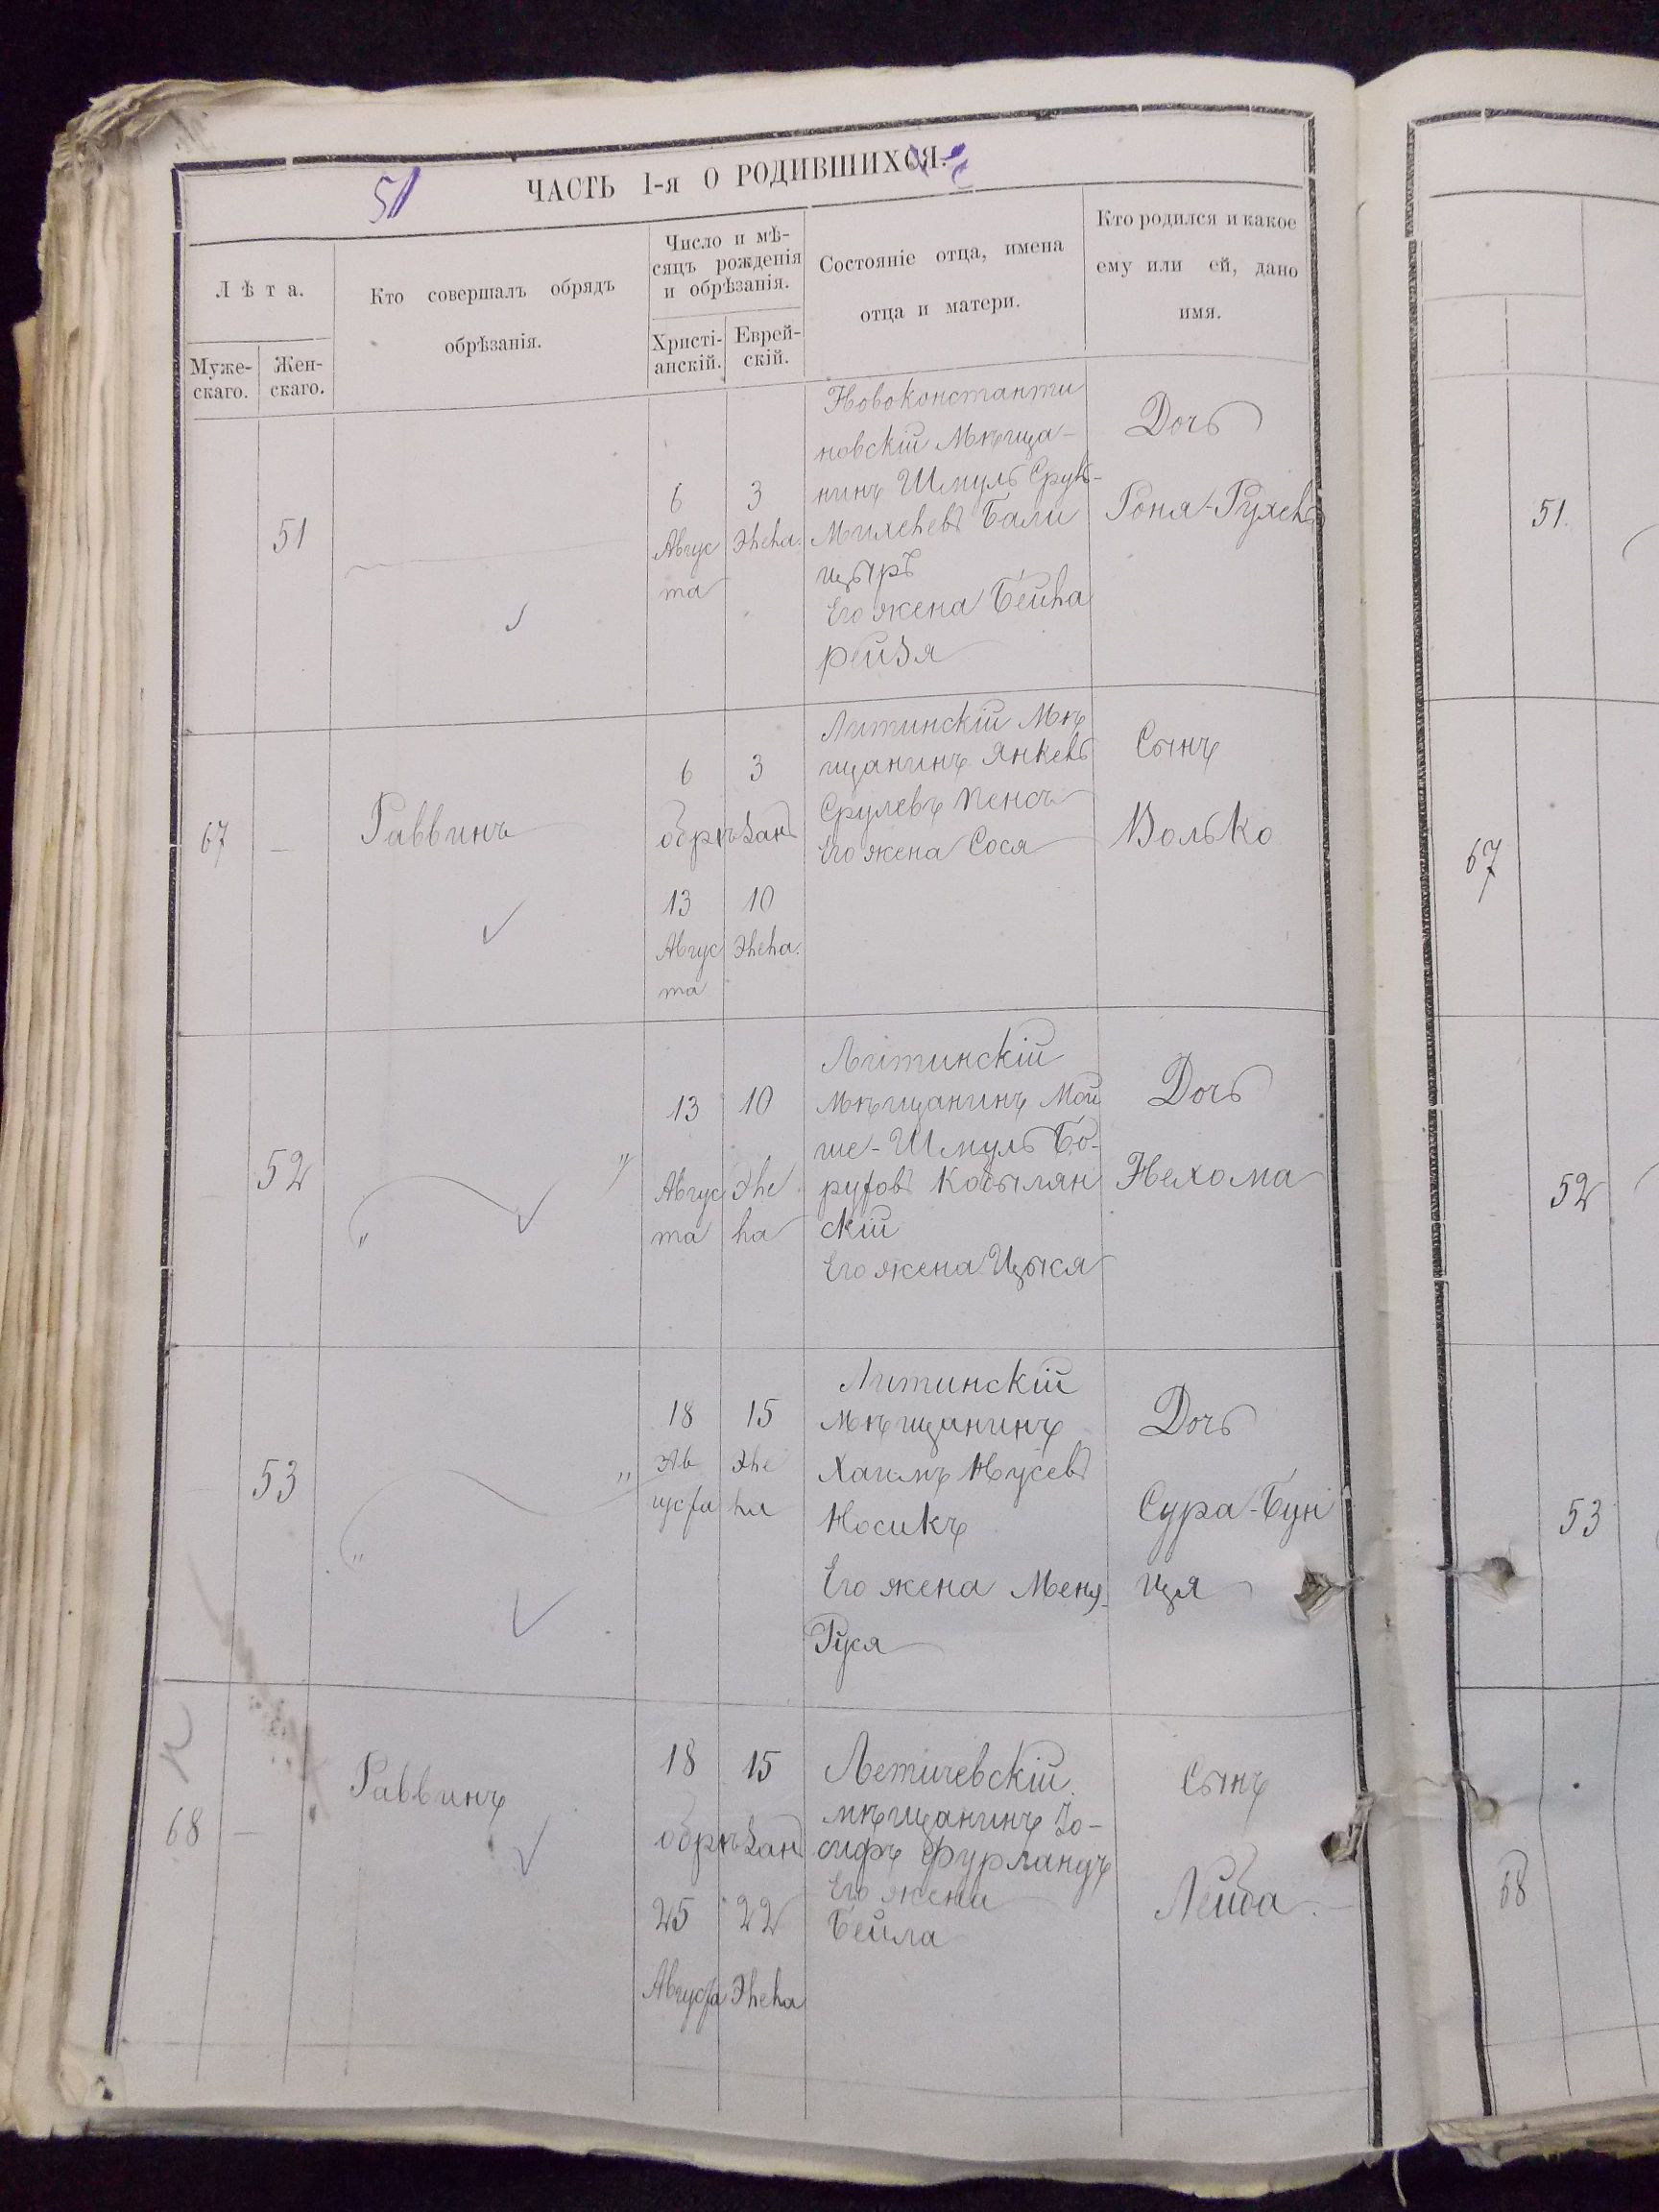 51
ЧАСТЬ I-я О РОДИВШИХСЯ.
Лѣта.
Муже-
скаго.
Жен-
скаго.
Кто совершалъ обрядъ
обрѣзанія.
Число и мѣ-
сяцъ рожденія
и обрѣзанія.
Христі-
анскій.
Еврей-
скій.
Состояніе отца, имена
отца и матери.
Кто родился и какое
ему или ей, дано
имя.
51
6
Авгус
та
3
Элела.
Новоконстанти
новскій Мѣща-
нинъ Шмуль Сруль-
Михелевъ Бали
цыръ
Его жена Бейла
рейзя
Дочь
Роня-Рухель
51.
67
—
Раввинъ
6 3
обрѣзанъ
13 10
Авгус
та
Элела.
Литинскій Мѣ
щанинъ Янкель
Срулевъ Пенсъ
Его жена Сося
Сынъ
Волько
67
52
13
Авгус
та
10
Эле
ла
Литинскій
Мѣщанинъ Мой
ше-Шмуль Бо-
руховъ Кобылян
скій
Его жена Цыся
Дочь
Нехома
52
53
18
Ав
густа
15
Эле
ла
Литинскій
Мѣщанинъ
Хаимъ Нусевъ
Носикъ
Его жена Меня-
Руся
Дочь
Сура-Бун
ця
53
68
—
Раввинъ
18 15
обрѣзанъ
25 22
Августа Элела
Летичевскій
мѣщанинъ Іо-
сифъ Фурландъ
Его жена
Бейла
Сынъ
Лейба.
68